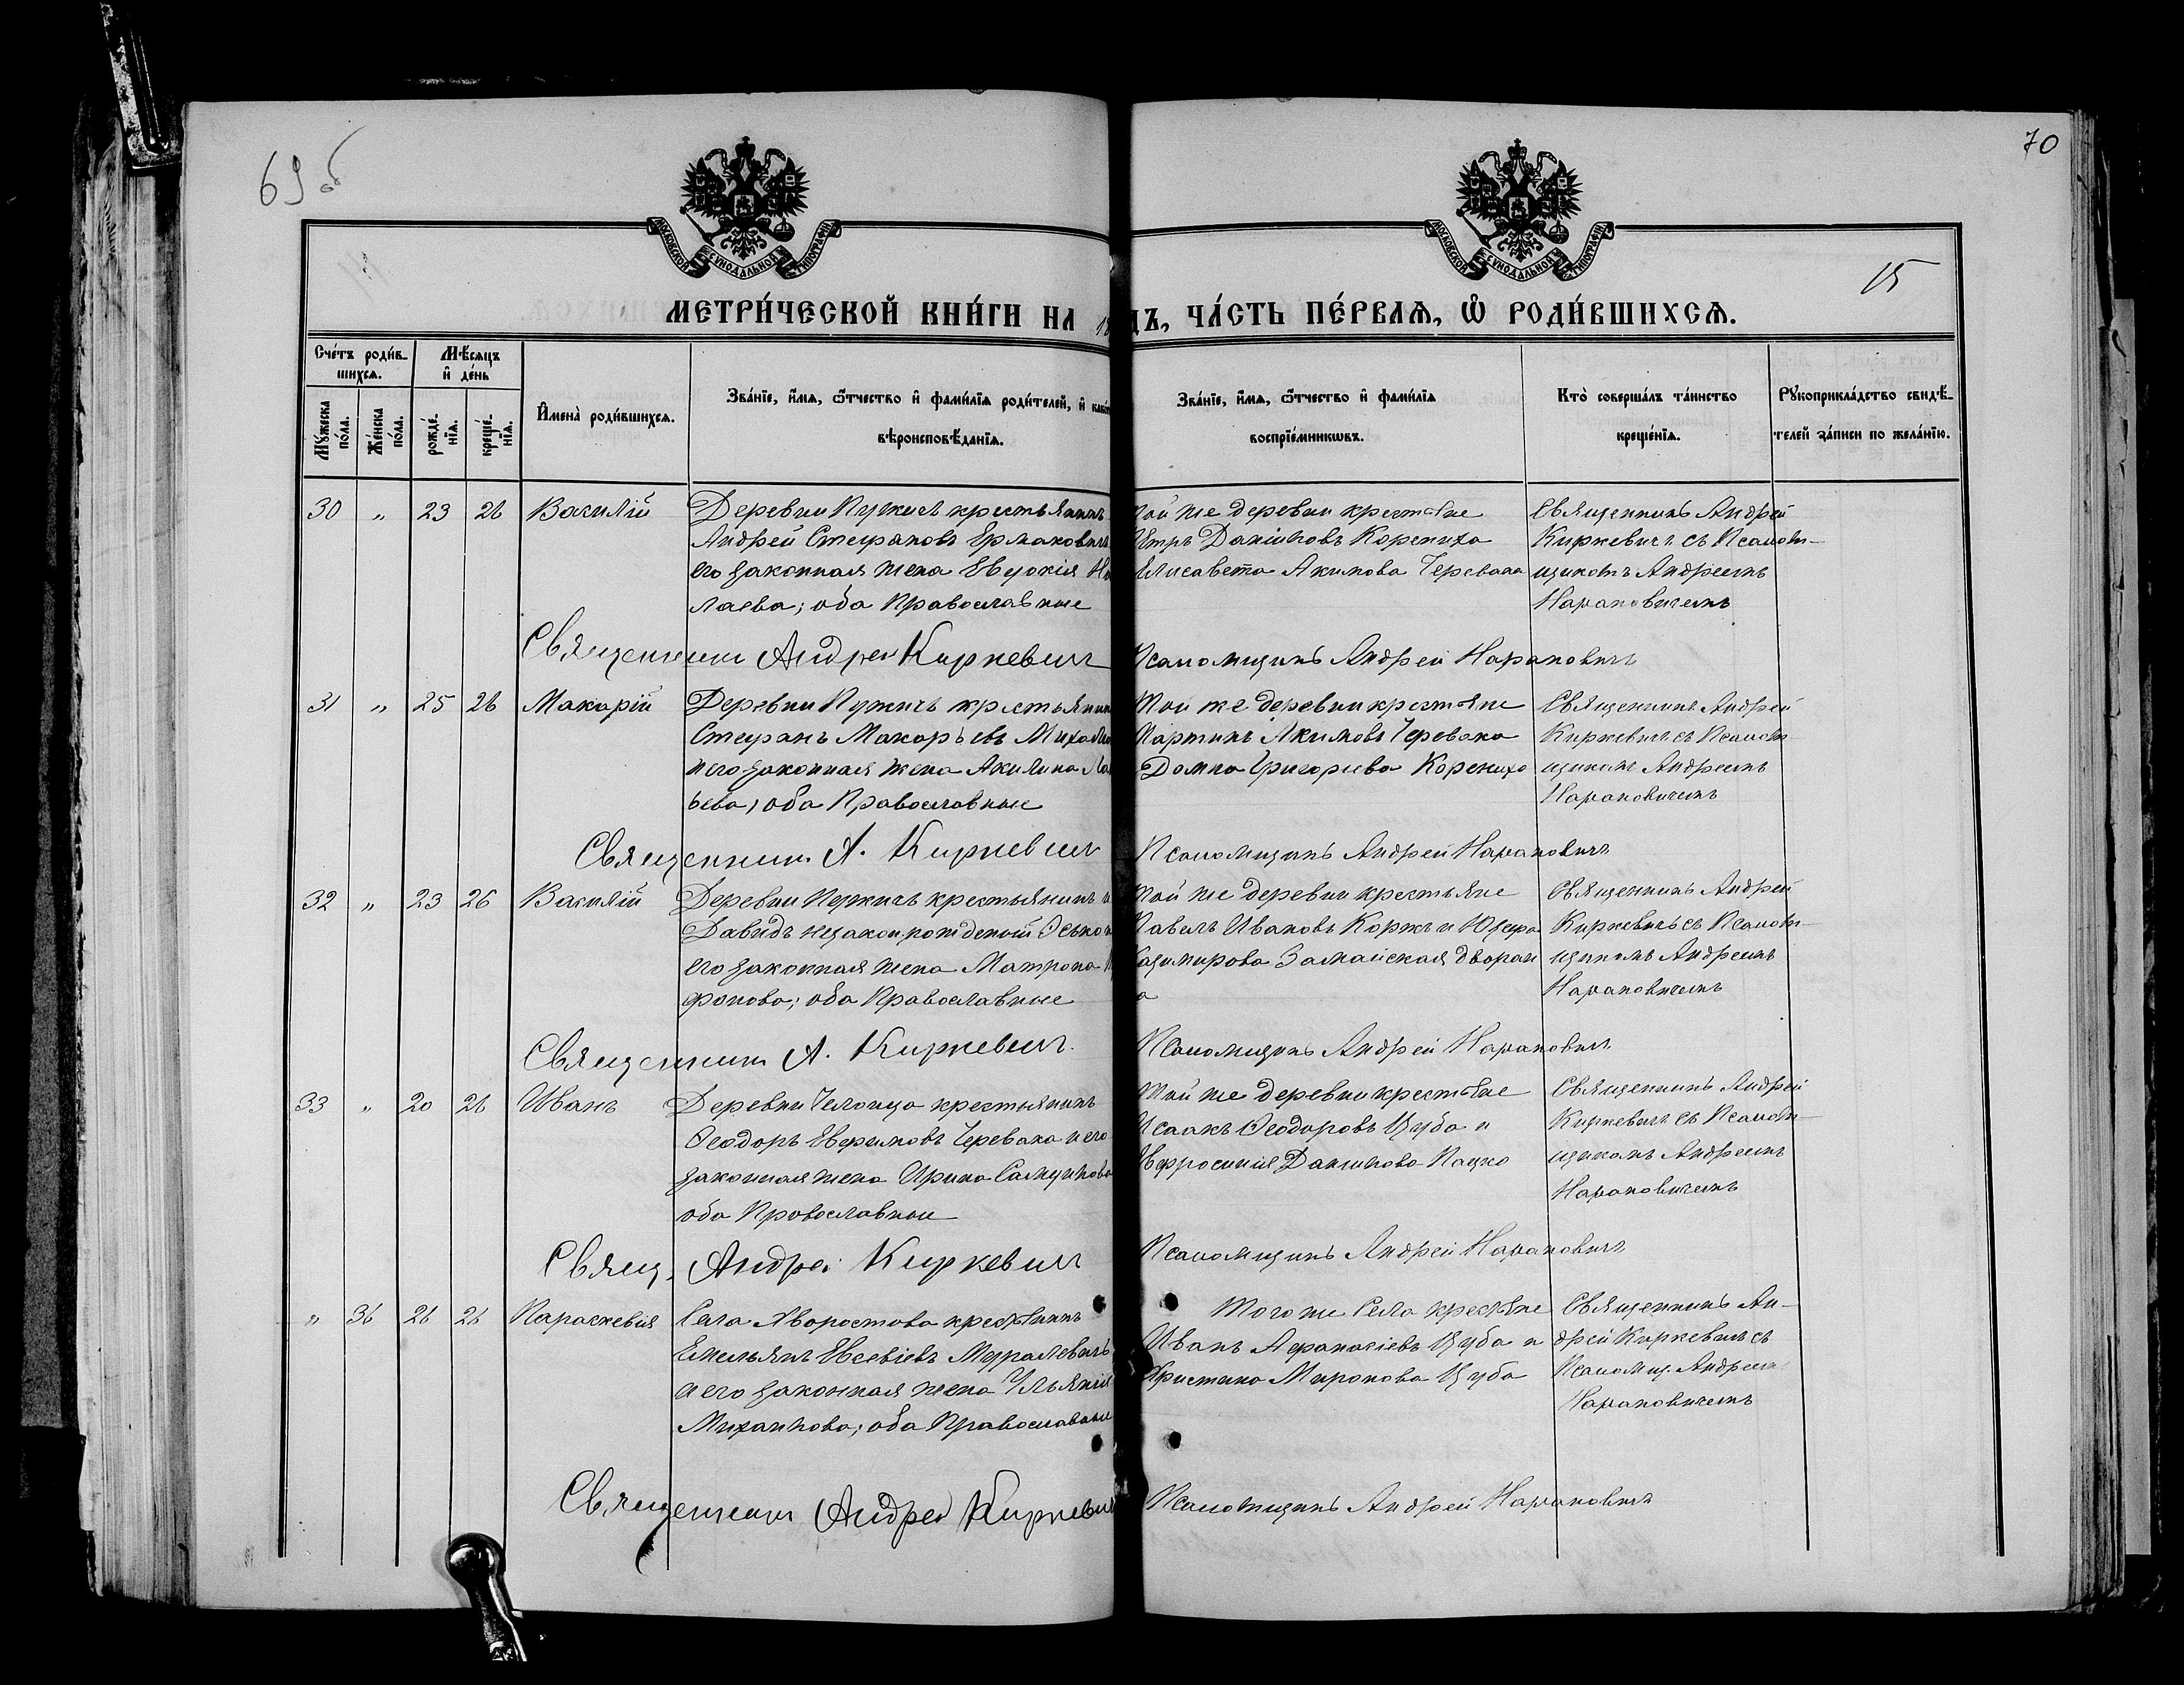 69 об
70
15
МОСКОВСКОЙ СУНОДАЛЬНОЙ ТИПОГРАФІИ
МОСКОВСКОЙ СУНОДАЛЬНОЙ ТИПОГРАФІИ
МЕТРИ́ЧЕСКОЙ КНИ́ГИ НА 18
ДЪ, ЧА́СТЬ ПЕ́РВАѦ, Ѽ РОДИ́ВШИХСѦ.
Сче́тъ роди́в-
шихсѧ.
Мѣ́сѧцъ
и҆ де́нь
Мꙋ́жеска
по́ла.
Же́нска
по́ла.
рожде́-
нїѧ.
креще́-
нїѧ.
И҆мена̀ роди́вшихсѧ.
Зва́нїе, и҆́мѧ, ѻ҆́тчество и҆ фами́лїѧ роди́телей, и҆
вѣроисповѣ́данїѧ.
Зва́нїе, и҆́мѧ, ѻ҆́тчество и҆ фами́лїѧ
воспрїе́мникѡвъ.
Кто̀ соверша́лъ та́инство
креще́нїѧ.
Рꙋкоприкла́дство свидѣ́-
телей за́писи по жела́нїю.
30 " 23 26 Василій
Деревни Пужичъ крестьянинъ
Андрей Стефановъ Ермаковичъ
его законная жена Евдокія Ни
лаева; оба Православные
той же деревни крестьяне
Петръ Даніиловъ Корениха
Елисавета Акимова Черевака
Священникъ Андрей
Киркевичъ съ Псалом-
щикомъ Андреемъ
Нарановичемъ
Священникъ Андрей Киркевичъ
Псаломщикъ Андрей Нарановичъ
31 " 25 26 Макарій
Деревни Пужичъ крестьянин
Стефанъ Макарьевъ
и его законная жена Акилина
ьева; оба Православные
Той же деревни крестьяне
Мартинъ Акимовъ Черевака
Домна Григорьева Корениха
Священникъ Андрей
Киркевичъ съ Псалом-
щикомъ Андреемъ
Нарановичемъ
Священникъ А. Киркевичъ
Псаломщикъ Андрей Нарановичъ
32 " 23 26 Василій
Деревни Пужичъ крестьянинъ
Давидъ незаконорожденный
его законная жена Матрона
фонова; оба Православные
той же деревни крестьяне
Павелъ Ивановъ Коржъ и
Казимирова Замайская дворян
а
Священникъ Андрей
Киркевичъ съ Псалом-
щикомъ Андреемъ
Нарановичемъ
Священникъ А. Киркевичъ
Псаломщикъ Андрей Нарановичъ
33 " 20 26 Иванъ
Деревни Челонца крестьянинъ
Ѳеодоръ Ефимовъ Черевака и его
законная жена Ирина Самуилова
оба Православные
Той же деревни крестьяне
Исаакъ Ѳеодоровъ Цуба и
Евфросинія Даниилова Пацко
Священникъ Андрей
Киркевичъ съ Псалом-
щикомъ Андреемъ
Нарановичемъ
Свящ. Андрей Киркевичъ
Псаломщикъ Андрей Нарановичъ
" 36 26 26 Параскевія
Села Хворостова крестьянинъ
Емельянъ Евсевіевъ Муралевичъ
и его законная жена Ульянія
Михаилова; оба Православные
Того же Села крестьяне
Иванъ Афанасіевъ Цуба и
Христина Миронова Цуба
Священникъ Ан-
дрей Киркевичъ съ
Псаломщ. Андреемъ
Нарановичемъ
Священникъ Андрей Киркевич
Псаломщикъ Андрей Нарановичъ